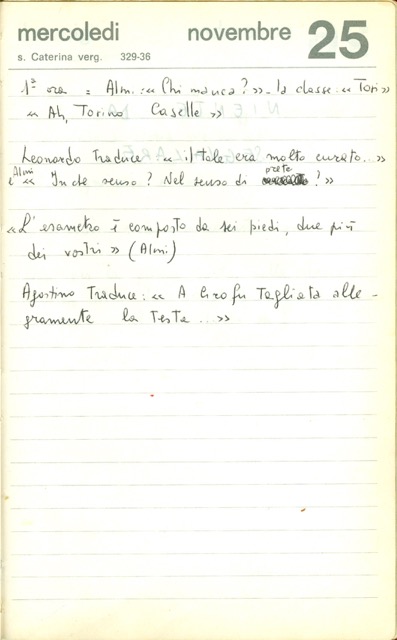 mercoledì novembre 25
s. Caterina verg. 329-36
1ª ora = Almi: «Chi manca?» - la classe: «Tori»
« Ah, Torino Caselle »
Leonardo Traduce « il tale era molto curato...»
e Almi « In che senso? Nel senso di prete ?»
«L'esametro è composto da sei piedi, due più
dei vostri» (Almi)
Agostino Traduce: « A Ciro fu Tagliata alle-
gramente la Testa ...»